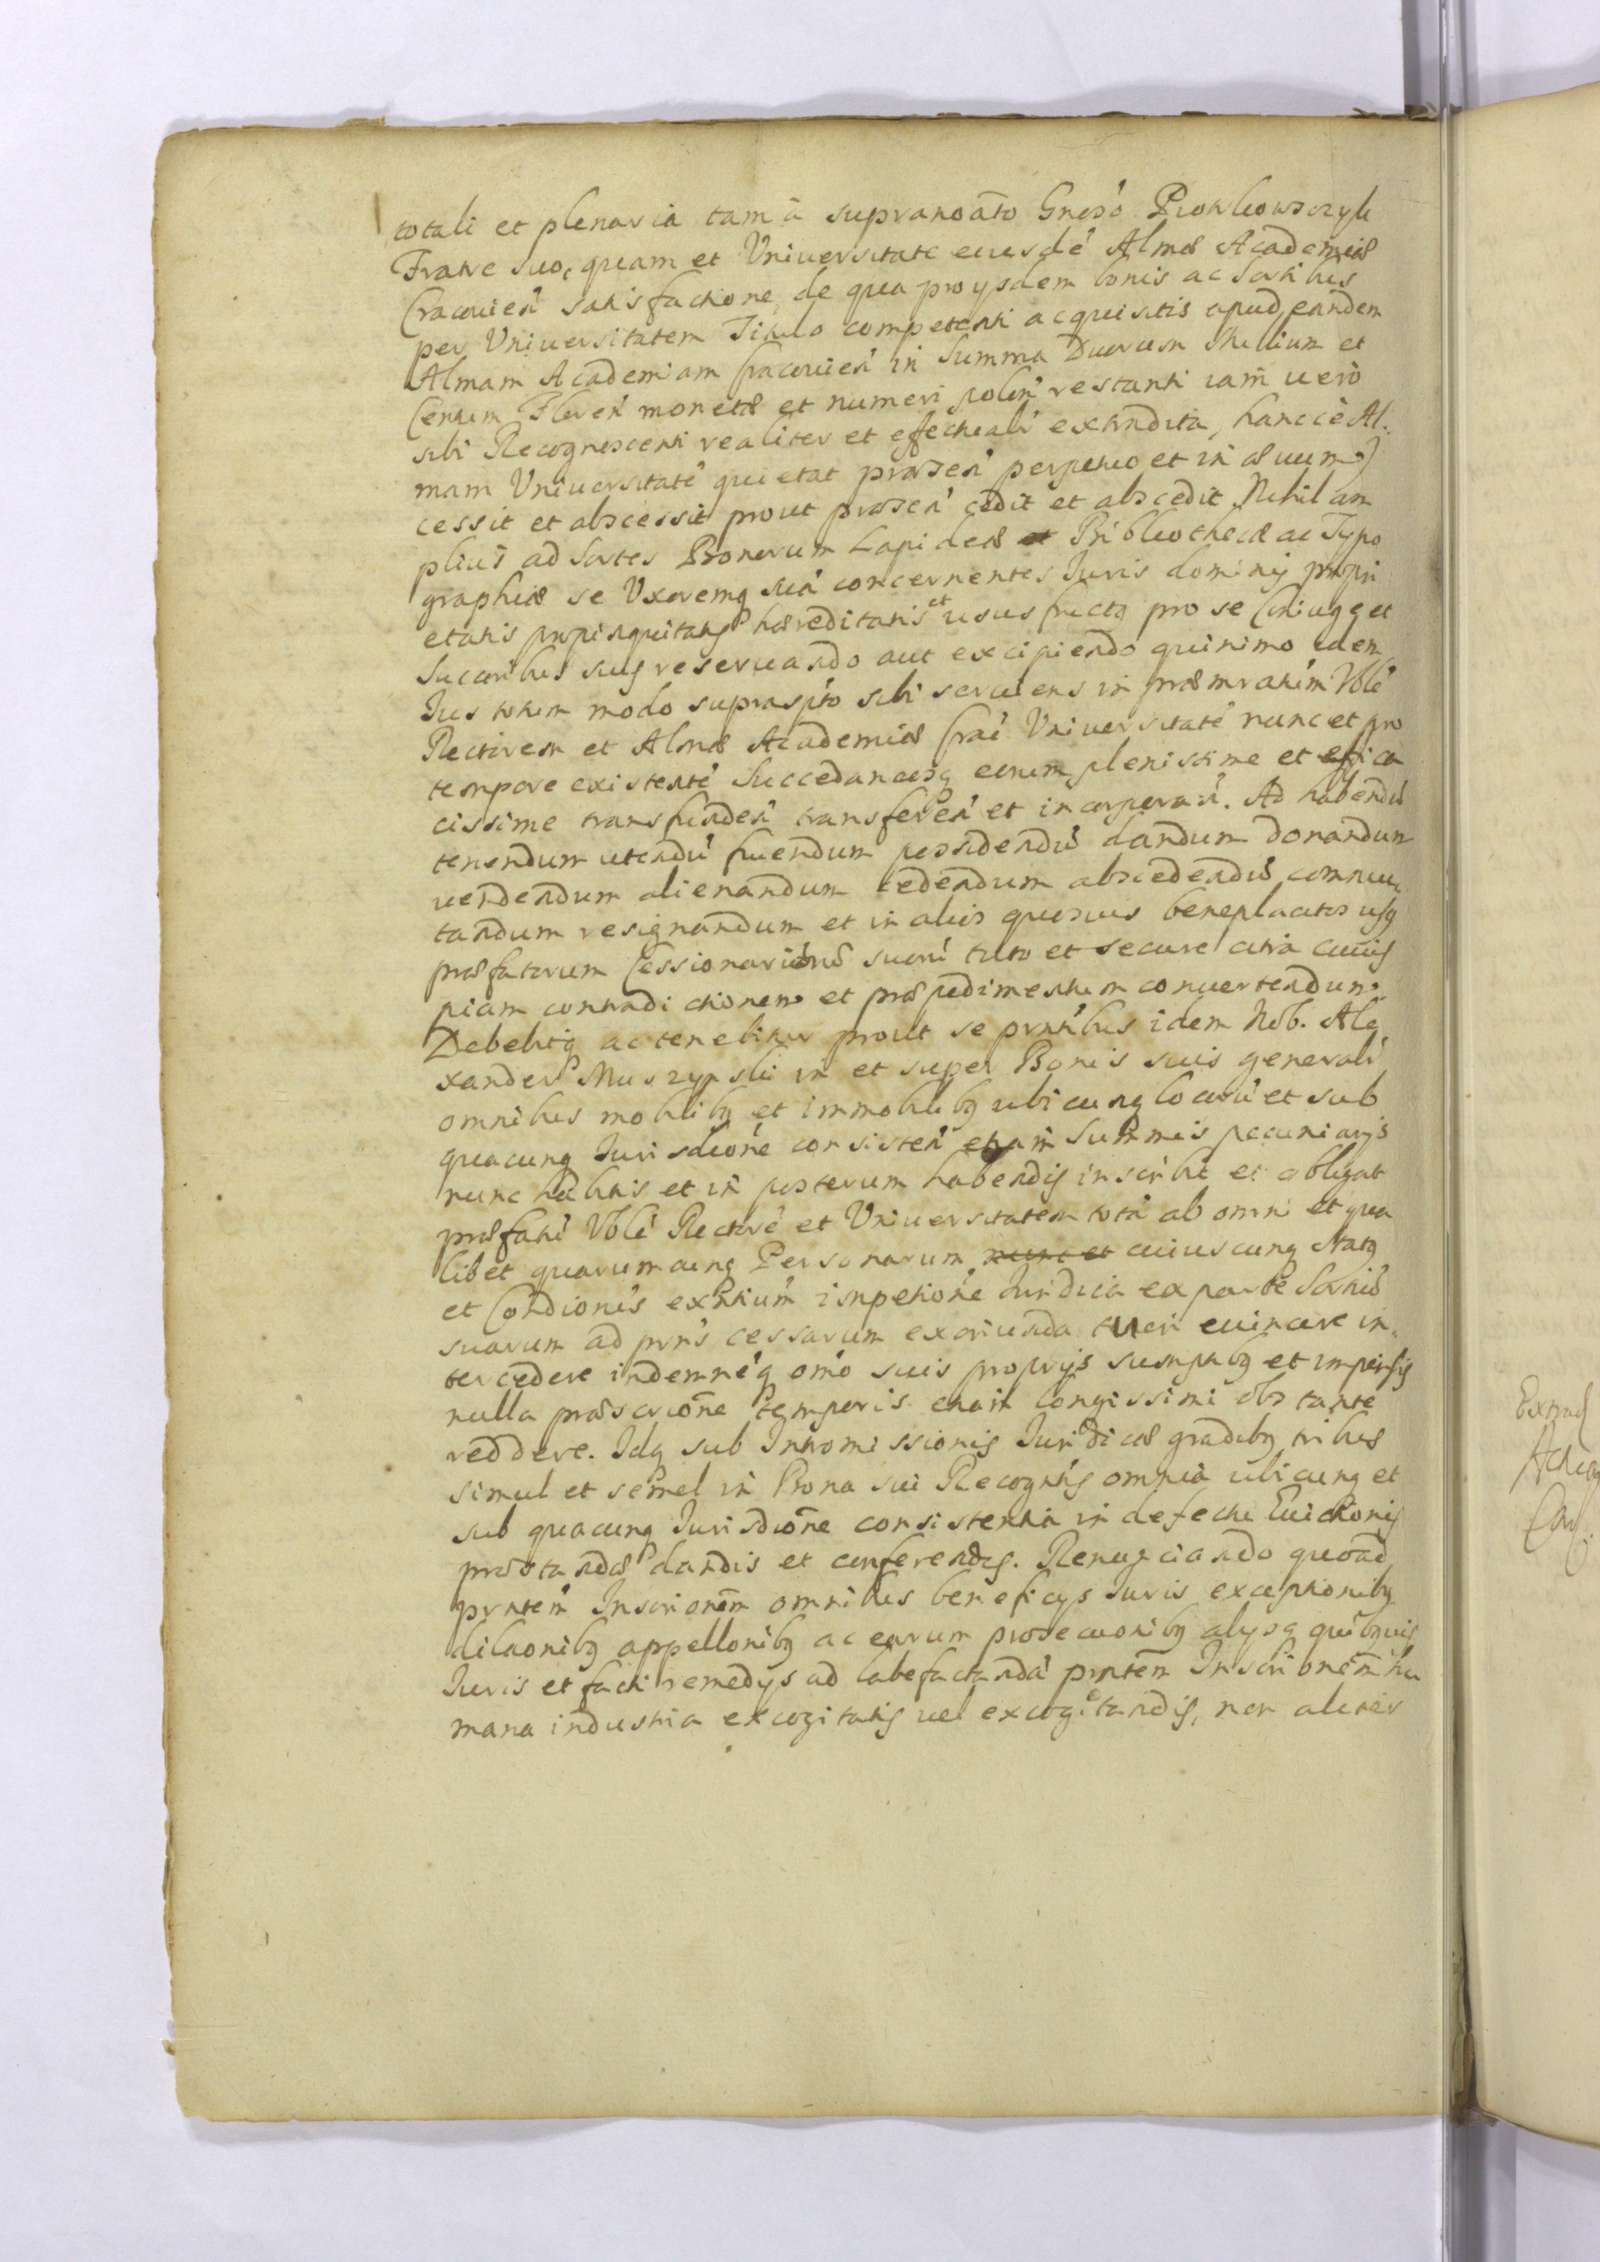 totali et plenaria tam à supranoãto Gnoso Piotrkowczyk
Fratre suo, quam et Universitate eiusdé Almæ Academiæ
Cracovień satisfactione, de qua pro ysdem bonis ac Sortibus
per Universitatem Titulo competenti acquisitis apud eandem
Almam Academiam Cracovień in Summa Duorum Millium et
Centum Floreń monetæ et numeri polon restanti iam vero
sibi Recognoscenti realiter et effectuali extradita, hancce Al-
mam Universitaté quietat præseń perpetuo et in ævum)
cessit et abscessit prout præseń cedit et abscedit Nihil am
plius ad Sortes Bonorum Lapideæ et Bibliothecæ ac Typo
graphiæ se Uxoremq suá concernentes Juris dominij propri
etatis propinquitatis hæreditatis et usus fructq pro se Coniuge et
Succoribus suis reservando aut excipiendo quinimo idem
Jus totum modo suprascpto sibi serviens in præmratum Vble
Rectorem et Almæ Academiæ Craé Universitaté nunc et pro
tempore existenté Succedaneosq eorum plenissime et effica
cissime transfundeń transfereń et incorporań. Ad habendú
tenendum utendú fruendum possidendú dandum donandum
vendendum alienandum cedendum abscedendú commu-
tandum resignandum et in alios quosvis beneplacitos usq
præfatorum Cessionariorú suorú tuto et secure citra cuius
piam contradictionem et præpedimentum convertendum.
Debebitq ac tenebitur prout se prntibus idem Nob. Ale
xander Muszynski in et super Bonis suis generali
omnibus mobilibq et immobilibq ubicunq locorú et sub
quacunq Jurisdione consisteń etiam Summis pecuniarijs
nunc habitis et in posterum habendis inscribit et obligat
præfatú Vble Rectoré et Universitatem totá ab omni et qua
libet quarumcunq Personarum nunc et cuiuscunq Statq
et Condionis exntium impetione Juridica ex parte Sortiú
suarum ad prns cessarum exoriunda tueri evincere in-
tercedere indemneq omó suis proprijs sumptibq et impensis
nulla præscrione temporis etiam longissimi obstante
reddere. Idq sub Intromissionis Juridicæ gradibq tribus
simul et semel in Bona sui Recogntis omnia ubicunq et
sub quacunq Jurisdione consistentia in defectu Evictionis
præstandæ dandis et conferendis. Renunciando quoad
prntem Inscrionem omnibus beneficijs Juris exceptionibq
dilaonibq appellonibq ac earum prosecuonibq alijsq quibqvis
Juris et facti remedijs ad labefactandá prntem Inscrionem hu
mana industria excogitatis vel excogitandis, non aliter
Extrad